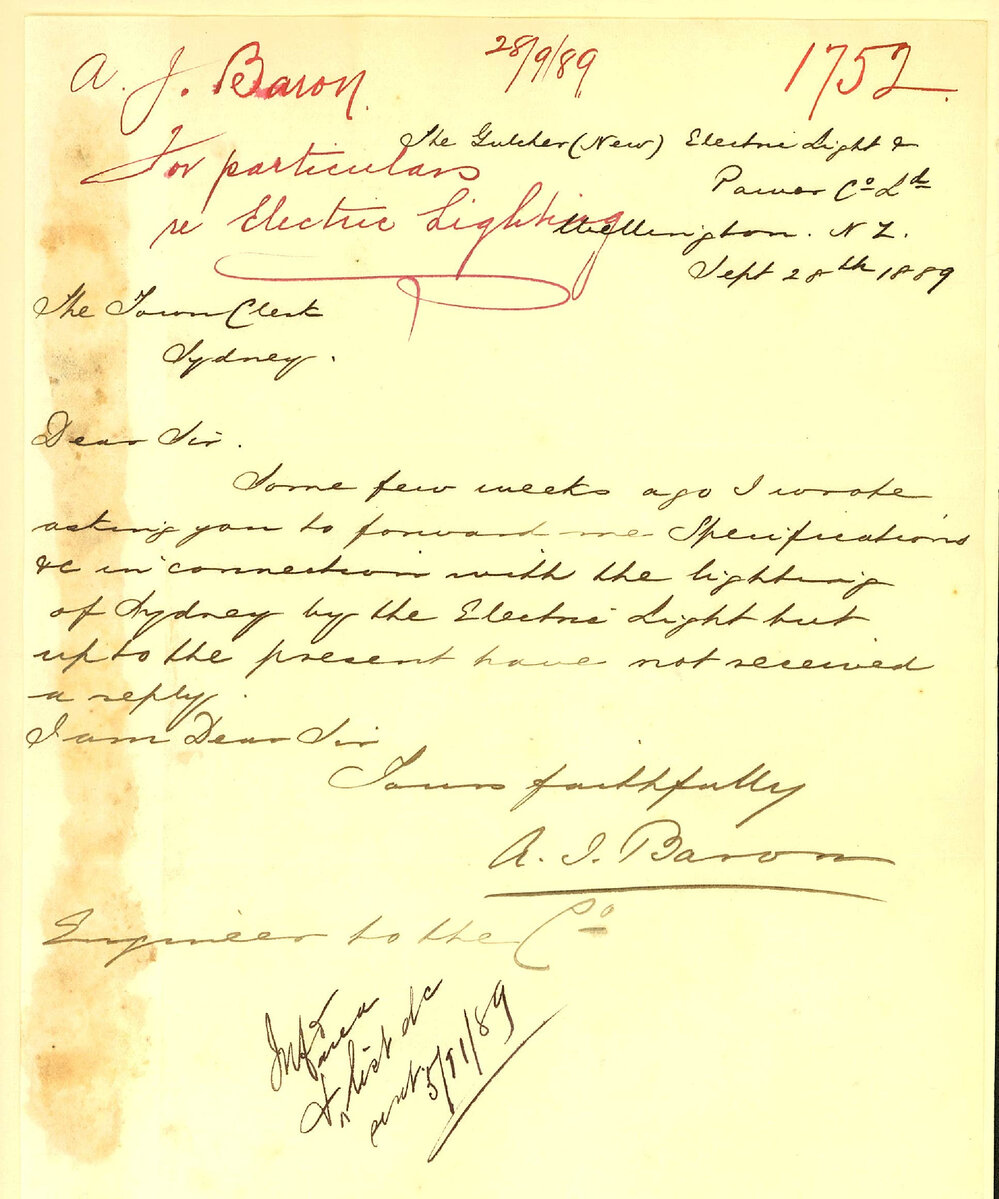 A. J. Baron.
28/9/89
1752.
For particulars
re Electric Lighting
The Gulcher (New) Electric Light &
Power Co Ld
Wellington. N Z.
Sept 28th 1889
The Town Clerk
Sydney.
Dear Sir.
Some few weeks ago I wrote
asking you to forward me Specifications
&c in connection with the lighting
of Sydney by the Electric Light but
up to the present have not received
a reply.
I am Dear Sir
Yours faithfully
A. J. Baron
Engineer to the Co
Infd
area
& list &c
sent. 5/11/89